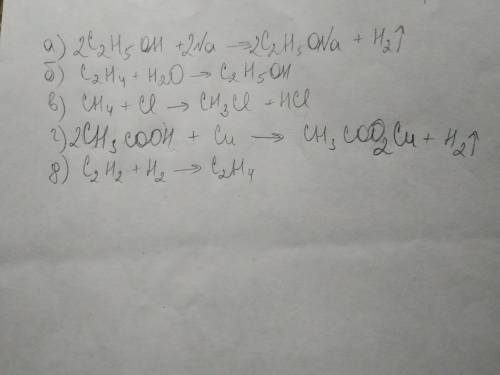 а) 2C₂H₅OH + 2Na → 2C₂H₅ONa + H₂↑
б) C₂H₄ + H₂O → C₂H₅OH
в) CH₄ + Cl → CH₃Cl + HCl
г) 2CH₃COOH + Cu → CH₃COO₂Cu + H₂↑
д) C₂H₂ + H₂ → C₂H₄